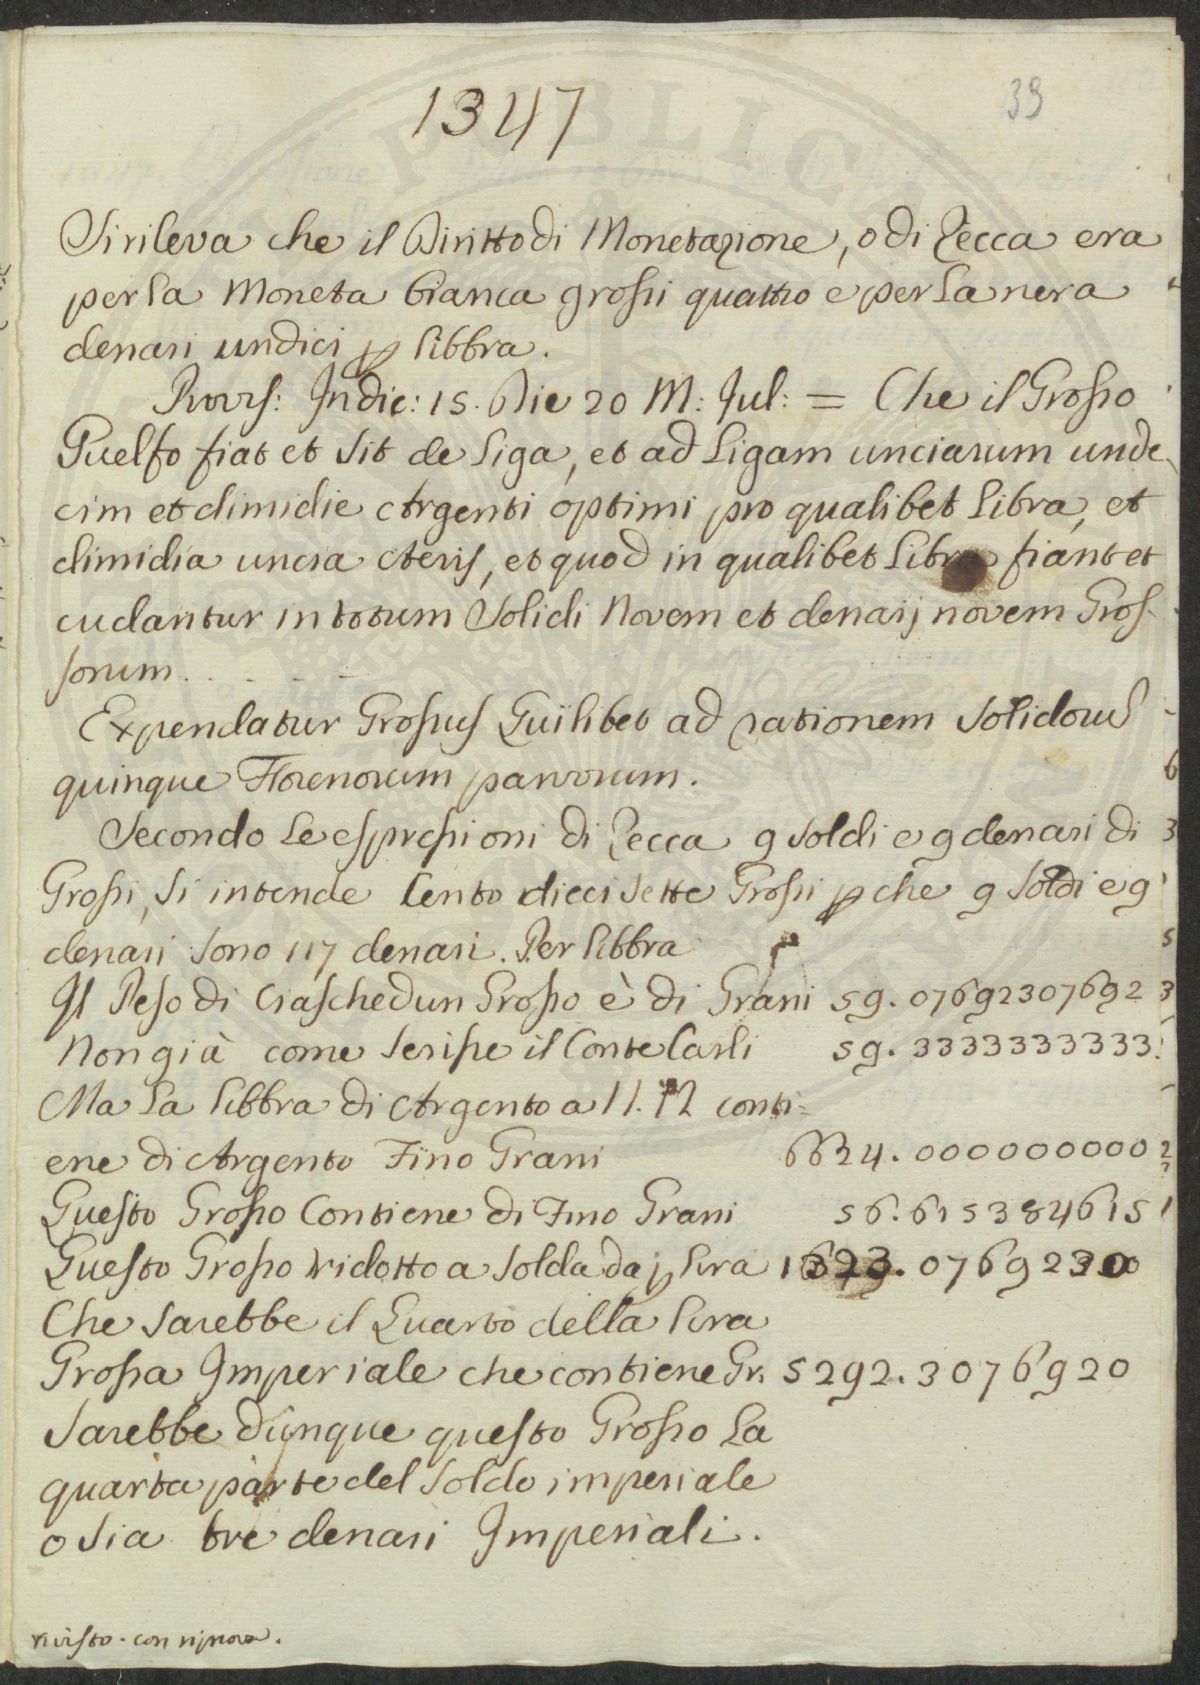 1347
39
Si rileva che il Diritto di Monetazione, o di Zecca era
per la Moneta bianca grossi quattro e per la nera
denari undici p libbra.
Provis: Indic: 15. Die 20 M: Jul: = Che il Grosso
Guelfo fiat et sit de liga, et ad ligam unciarum unde
cim et dimidie Argenti optimi pro qualibet Libra, et
dimidia uncia Aeris, et quod in qualibet Libra fiant et
cudantur in totum Solidi Novem et denarij novem Gros-
sorum.
Expendatur Grossus Quilibet ad rationem Solidorum
quinque Florenorum parvorum.
Secondo le espressioni di Zecca 9 soldi e 9 denari di
Grossi, si intende Cento diecisette Grossi p che 9 soldi e 9
denari sono 117 denari. Per libbra
Il Peso di Ciaschedun Grosso è di Grani 59. 07692307692
Non già come scrisse il Conte Carli 59. 3333333333.
Ma la libbra di Argento a 11. 12 conti=
ene di Argento Fino Grani 6624. 0000000000
Questo Grosso Contiene di Fino Grani 56. 6153846151
Questo Grosso ridotto a Solda da p lira 1323. 07692300
Che sarebbe il Quarto della lira
Grossa Imperiale che contiene Gr. 5292. 3076920
Sarebbe dunque questo Grosso la
quarta parte del Soldo imperiale
o sia tre denari Imperiali.
rivisto. con riprova.